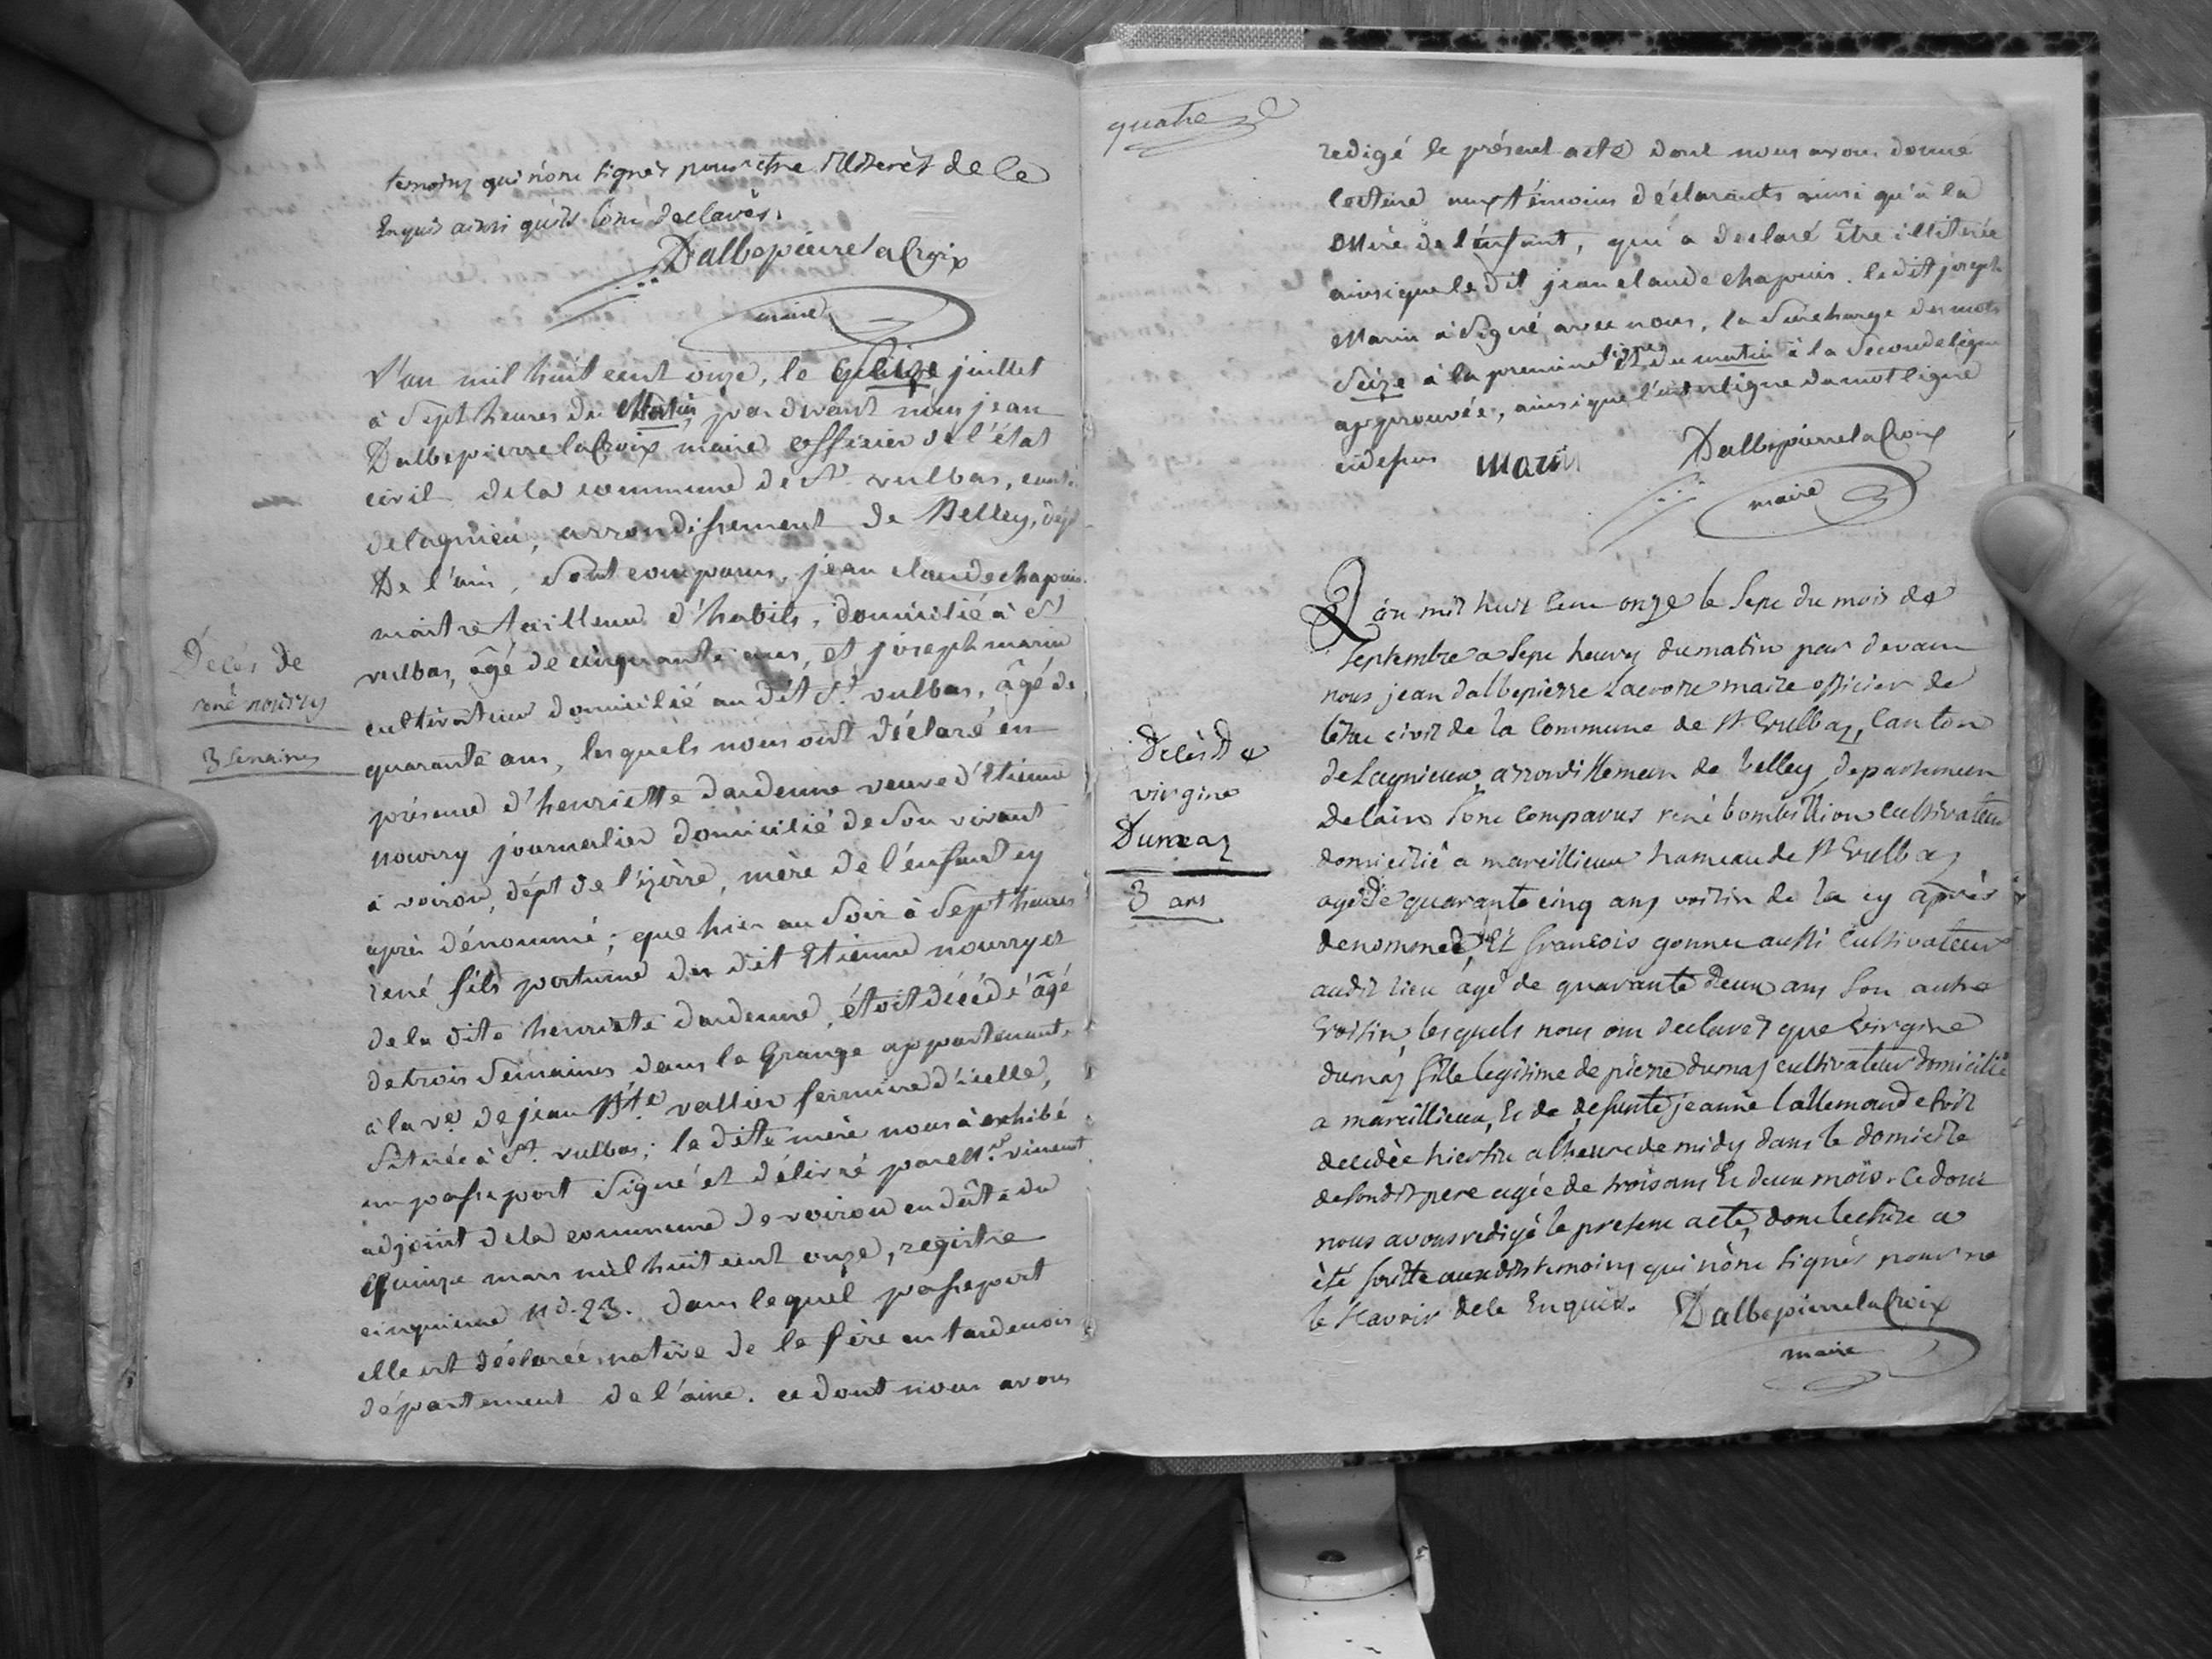 temoins qui nont signés pour etre illiterés de ce
Enquis ainsi quils lont declarés.
Dalbepierre laCroix
maire
L'an mil huit cent onze, le Seize juillet
à Sept heures du Matin, par devant nous jean
Dalbepierre laCroix maire officier de l'état
civil de la commune de St. vulbas, canton
de lagnieu, arrondissement de Belley, dépt
De l'ain, Sont comparus, jean claude chapuis
maitre tailleur d'habits, domicilié à St
vulbas, âgé de cinquante ans, et joseph marin
cultivateur domicilié au dit St. vulbas, âgé de
quarante ans, lesquels nous ont déclaré en
présence d'henriette dardenne veuve d'Etienne
nourry journalier domicilié de Son vivant
à voiron, dépt de l'izère, mère de l'enfant cy
après dénommé; que hier au Soir à Sept heures
rené fils postume du dit Etienne nourry et
de la dite henriete dardenne, étoit décédé âgé
de trois Semaines dans la Grange appartenante
à la ve. de jean Bte. vallier fermière d'icelle,
Située à St. vulbas; la dite mère nous à exhibé
un passeport Signé et délivré par Mr. vincent
adjoint de la commune de voiron en date du
Quinze mars mil huit cent onze, registre
cinquieme no. 23. dans lequel passeport
elle est déclarée native de la fère en tardenois
département de l'aine. ce dont nous avons
Decés de
rené nourry
3 semaines
quatre
redigé le présent acte dont nous avons donné
lecture aux témoins déclarants ainsi qu'à la
Mère de l'enfant, qui a déclaré être illitérée
ainsi que le dit jean claude chapuis. le dit joseph
Marin à Signé avec nous, la Surcharge des mots
Seize à la premiere ligne et du matin à la Seconde ligne
approuvée, ainsi que l'interligne du mot ligne
cidessus Marin Dalbepierre laCroix
maire
L'an mil huit cent onze le sept du mois de
Septembre a sept heures du matin par devant
nous jean dalbepierre Lacroix maire officier de
létat civil de la Commune de St Vulbas, Canton
de Lagnieux, arrondissement de belley, departement
de lain Sont Comparus rené bombillion Cultivateur
domicilié a marcillieux hameau de St Vulbas
agé de quarante cinq ans voisin de la cy après
denommée, Et francois gonnet aussi Cultivateur
audit lieu agé de quarante deux ans son autre
Voisin, lesquels nous ont declarés que Virgine
dumas fille legitime de pierre dumas cultivateur domicilié
a marcillieux, Et de defunte jeanne lallemand etoit
decedée hier a lheure de midy dans le domicile
de sondit pere agée de trois ans Et deux mois. Ce dont
nous avons redigé le present acte, dont lecture a
été faitte auxdits temoins qui nont signés pour ne
le scavoir de ce Enquis. Dalbepierre laCroix
maire
Decès De
virgine
Dumas
3 ans